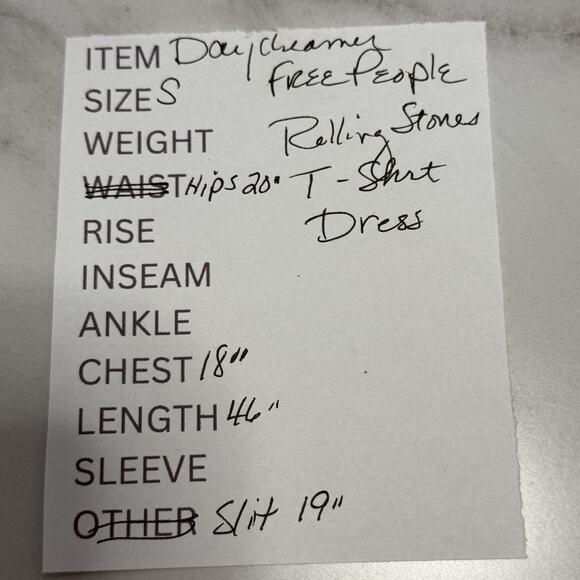 ITEM Daydreamer
Free People
SIZE S
WEIGHT Rolling Stones
WAIST Hips 20" T-Shirt
RISE Dress
INSEAM
ANKLE
CHEST 18"
LENGTH 46"
SLEEVE
OTHER Slit 19"